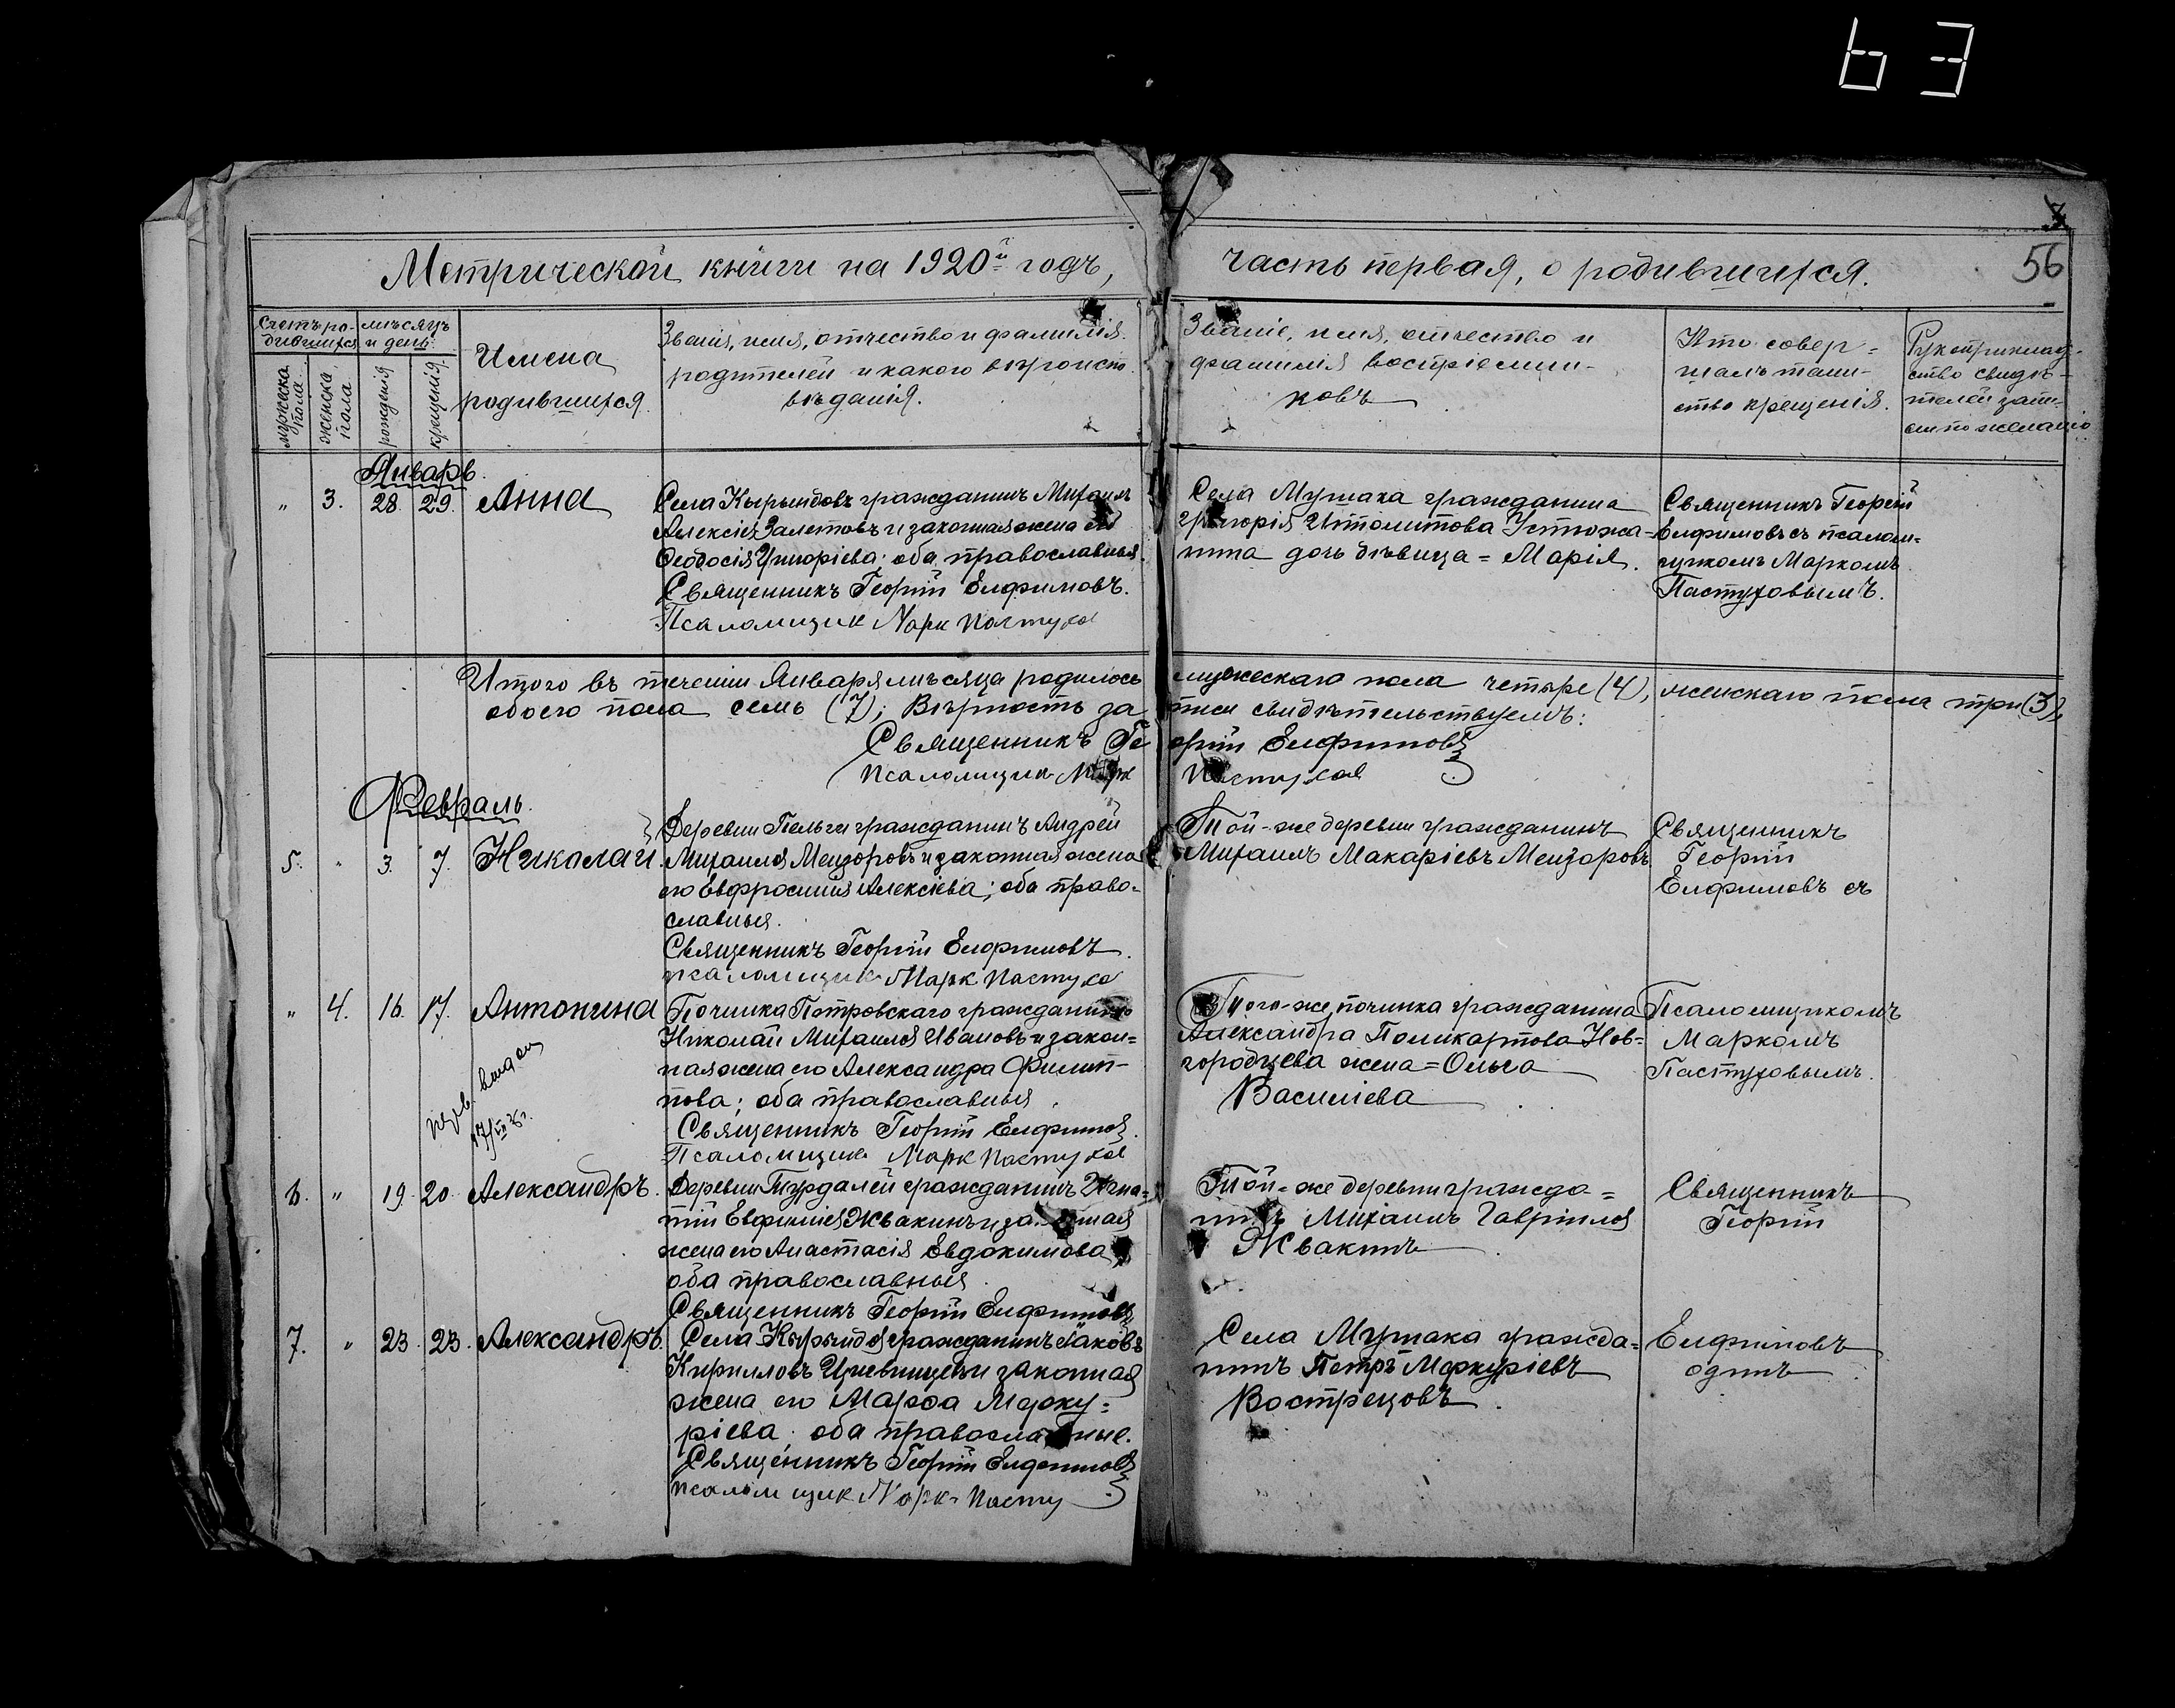 63
56
Метрической книги на 1920й годъ,
часть первая, о родившихся.
Счетъ ро-
дившихся
мѣсяцъ
и день.
мужеска
пола.
женска
пола
рожденія
крещенія.
Имена
родившихся.
Званія, имя, отчество и фамилія
родителей и какого вѣроиспо
вѣданія.
Званіе, имя, отчество и
фамилія воспріемни-
ковъ
Кто совер=
шалъ таин-
ство крещенія.
Рукоприклад-
ство свидѣ-
телей запи-
си по желанію
Январь.
" 3. 28. 29. Анна
Села Кырындовъ гражданинъ Михаилъ
Алексіев Залетовъ и законная жена его
Ѳеодосія Григоріева; оба православныя.
Священникъ Георгій Елфимовъ.
Псаломщик Марк Пастухов
Села Мушака гражданина
Григорія Ипполитова Устюжа=
нина дочь дѣвица = Марія.
Священникъ Георгій
Елфимовъ съ псалом=
щикомъ Маркомъ
Пастуховымъ.
Итого въ теченіи Января мѣсяца родилось мужескаго пола четыре (4), женскаго пола три (3),
обоего пола семь (7); Вѣрность записи свидѣтельствуемъ:
Священникъ Георгій Елфимовъ
Псаломщик Марк Пастухов
Февраль.
5. " 3. 7. Николай.
Деревни Пельги гражданинъ Андрей
Михаилов Мещоровъ и законная жена
его Евфросинія Алексіева; оба право-
славныя.
Священникъ Георгій Елфимовъ.
псаломщик Марк Пастухов
Той-же деревни гражданинъ
Михаилъ Макаріевъ Мещоровъ
Священникъ
Георгій
Елфимовъ съ
" 4. 16. 17. Антонина
Починка Петровскаго гражданинъ
Николай Михаилов Ивановъ и закон=
ная жена его Александра Филип-
пова; оба православныя.
Священникъ Георгій Елфимов.
Псаломщик Марк Пастухов
Того-же починка гражданина
Александра Поликарпова Нов=
городцева жена = Ольга
Василіева
Псаломщикомъ
Маркомъ
Пастуховымъ.
6. " 19. 20. Александръ.
Деревни Турдалей гражданинъ Игна=
тій Евфиміев Жвакинъ и законная
жена его Анастасія Евдокимова
оба православныя.
Священникъ Георгій Елфимовъ
Той-же деревни гражда=
нинъ Михаилъ Гавріилов
Жвакинъ
Священникъ
Георгій
7. " 23. 23. Александръ.
Села Кырындов гражданинъ Іаковъ
Кирилловъ и законная
жена его Марѳа Мерку=
ріева; оба православные.
Священникъ Георгій Елфимовъ
псаломщик Марк Пасту
Села Мушака гражда=
нинъ Петръ Меркуріевъ
Вострецовъ.
Елфимовъ
одинъ